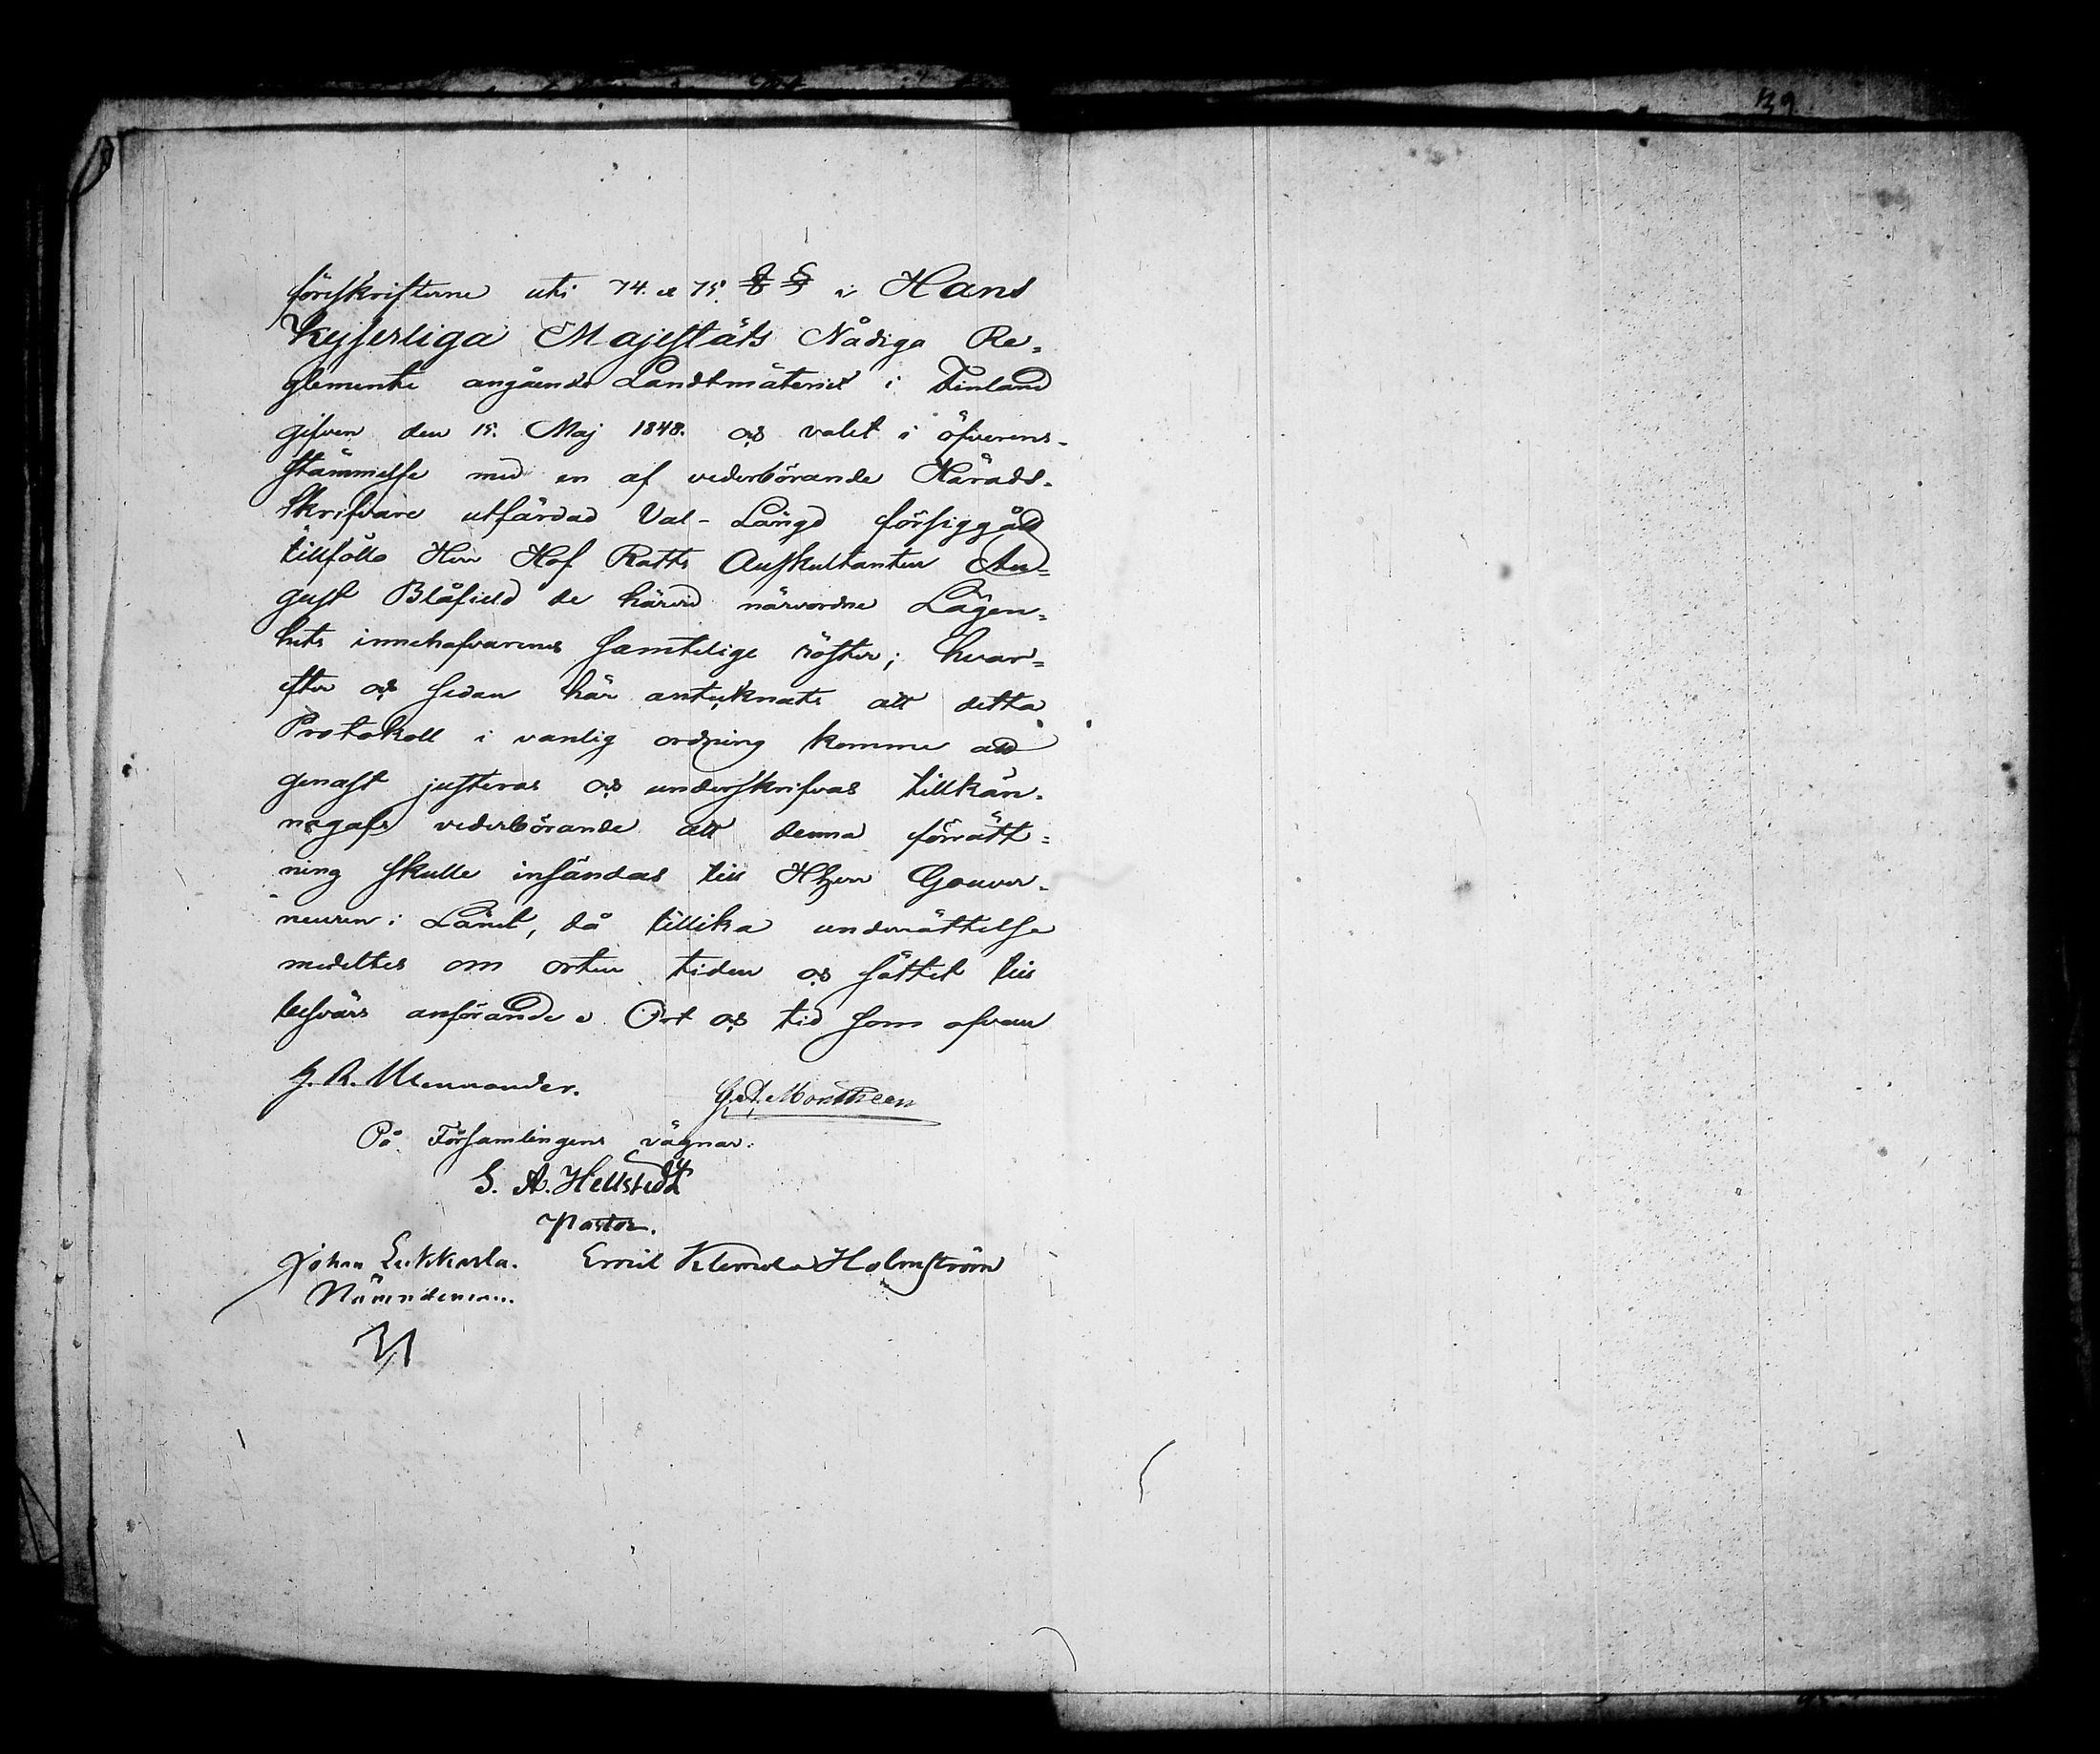 139
föreskrifterne uti 74. et 75. §§ i Hans
Kejserliga Majestäts Nådiga Re=
glemente angående Landtmäteriet i Finland
gifven den 15. Maj 1848. och valet i öfverens-
stämmelse med en af vederbörande Härads-
skrifvare utfärdad Val-Längd försiggått
tillföllo Herr Hof Rätts Auskultanten Au=
gust Blåfield de härvid närvordne Lägen=
hets innehafvarenes samtelige röster; hvar=
efter och sedan här antecknats att detta
Protokoll i vanlig ordning komme att
genast justeras och underskrifvas tillkän-
nagafs vederbörande att denna förrätt=
ning skulle insändas till HHerr Gouver-
neuren i Länet, då tillika underrättelse
medeltes om orten tiden och sättet till
besvärs anförande. Ort och tid som ofvan
Mennander.
På Församlingens vägnar:
G. A. Hellstedt
Pastor.
Johan Eukkarla. Emil Klemola Holmström
Nämndeman.